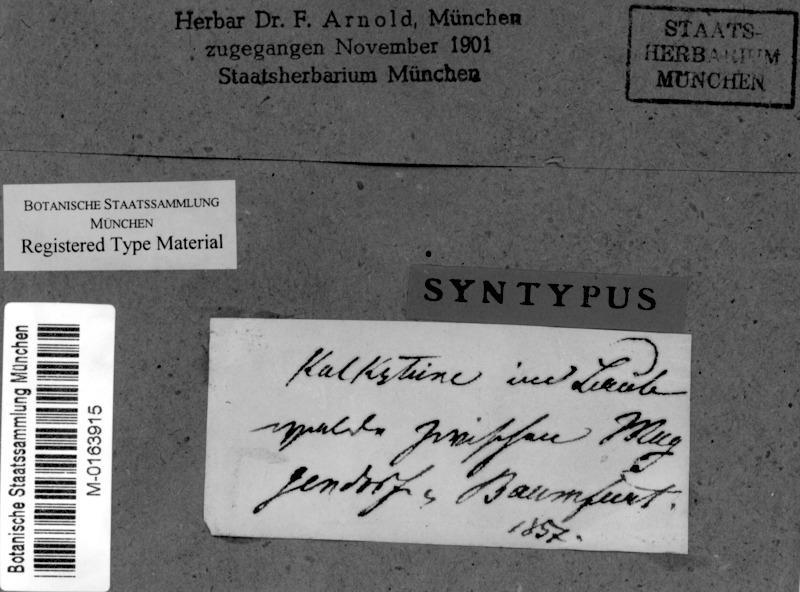 Herbar Dr. F. Arnold, München
zugegangen November 1901
Staatsherbarium München
STAATS-
HERBARIUM
MÜNCHEN
BOTANISCHE STAATSSAMMLUNG
MÜNCHEN
Registered Type Material
SYNTYPUS
Botanische Staatssammlung München
M-0163915
Kalksteine im Laub
walde zwischen Mug
gendorf u Baumfurt.
1857.